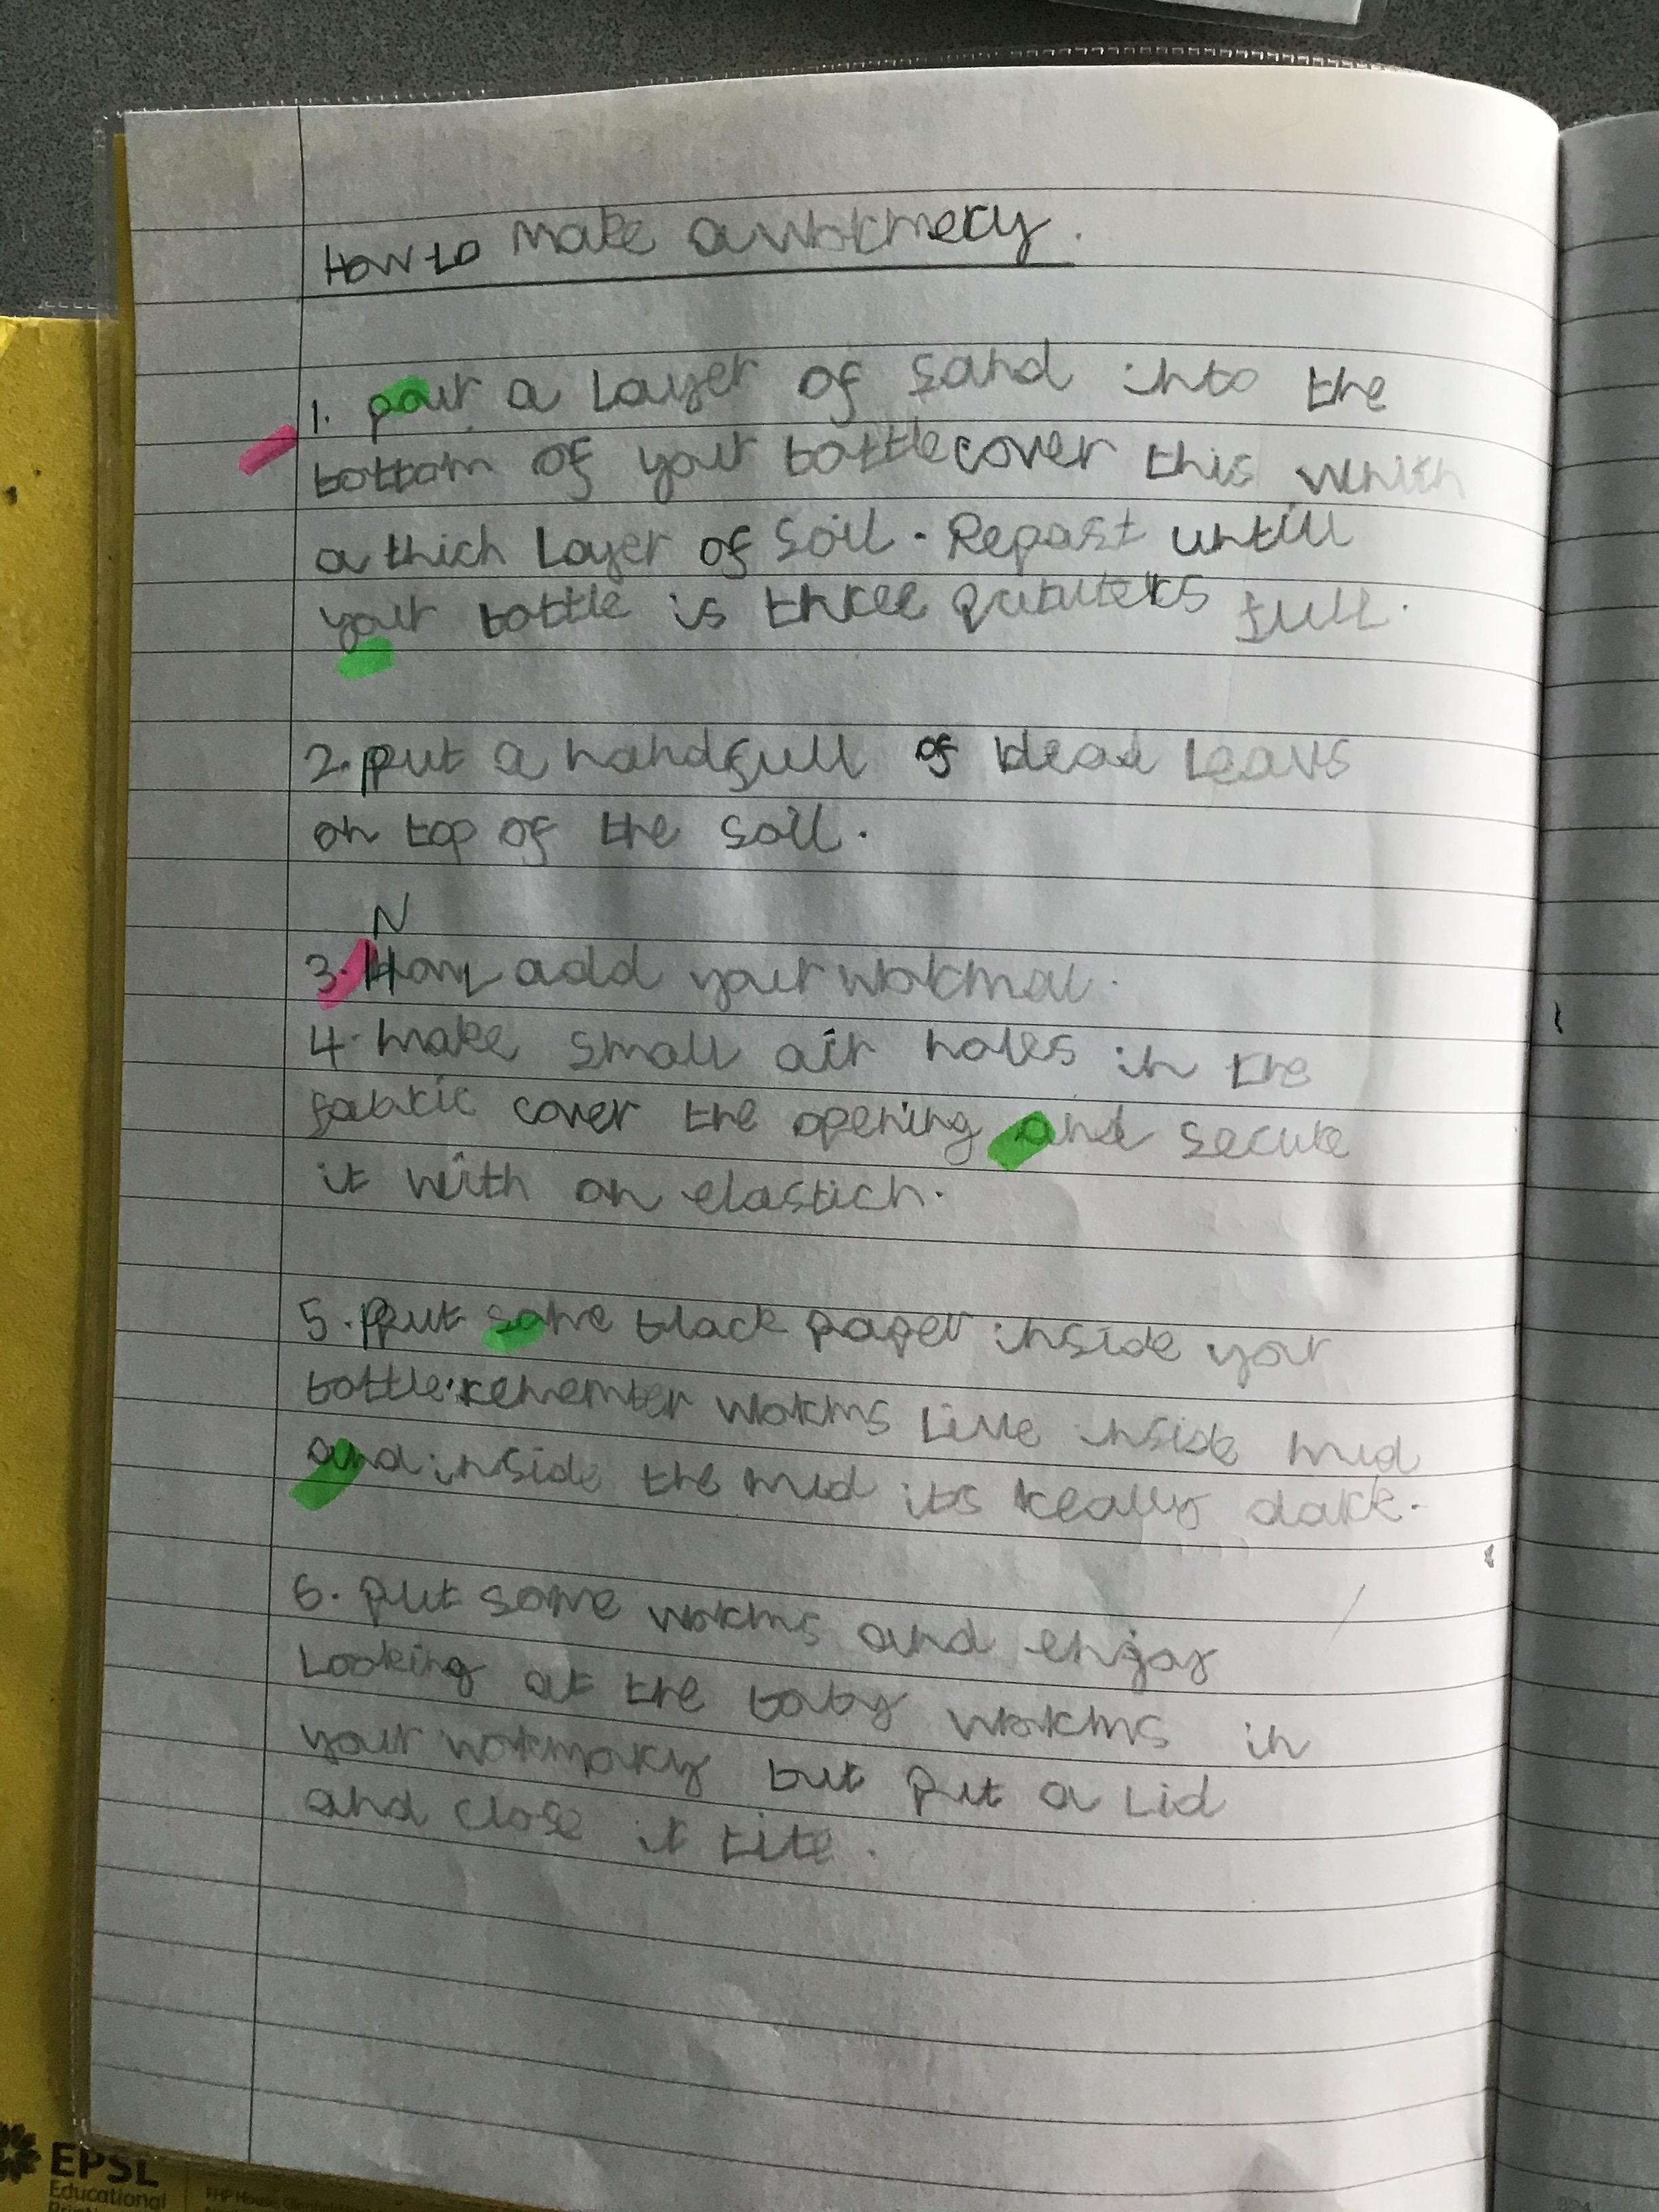 How to make a wormery.
1. pour a layer of sand into the
bottom of your bottle cover this whith
a thich layer of soil. Repast untill
your bottle is three quruters full.
2. put a handfull of dead leavs
on top of the soil.
N
3. How add your wormal.
4. make small air holes in the
fabric cover the opening and secure
it with an elastich.
5. Put some black paper inside your
bottle. remember worms live inside mud
and inside the mud its really dark.
6. put some worms and enjoy
Looking at the baby worms in
your wormory but put a lid
and close it tite.
EPSL
Educational